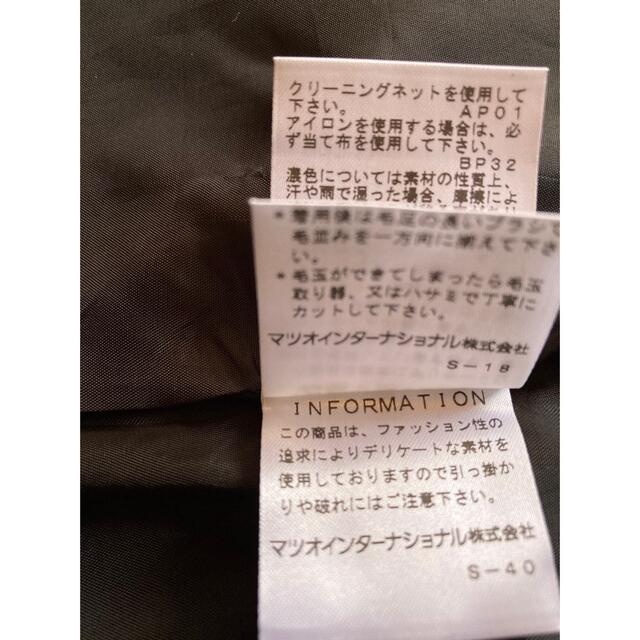 クリーニングネットを使用して
下さい。 AP01
アイロンを使用する場合は、必
ず当て布を使用して下さい。
BP32
濃色については素材の性質上、
汗や雨で湿った場合、摩擦によ
*着用後は毛足の長いブラシで
毛並みを一方向に揃えて下さ
い。
*毛玉ができてしまったら毛玉
取り器、又はハサミで丁寧に
カットして下さい。
マツオインターナショナル株式会社
S-18
INFORMATION
この商品は、ファッション性の
追求によりデリケートな素材を
使用しておりますので引っ掛か
りや破れにはご注意下さい。
マツオインターナショナル株式会社
S-40